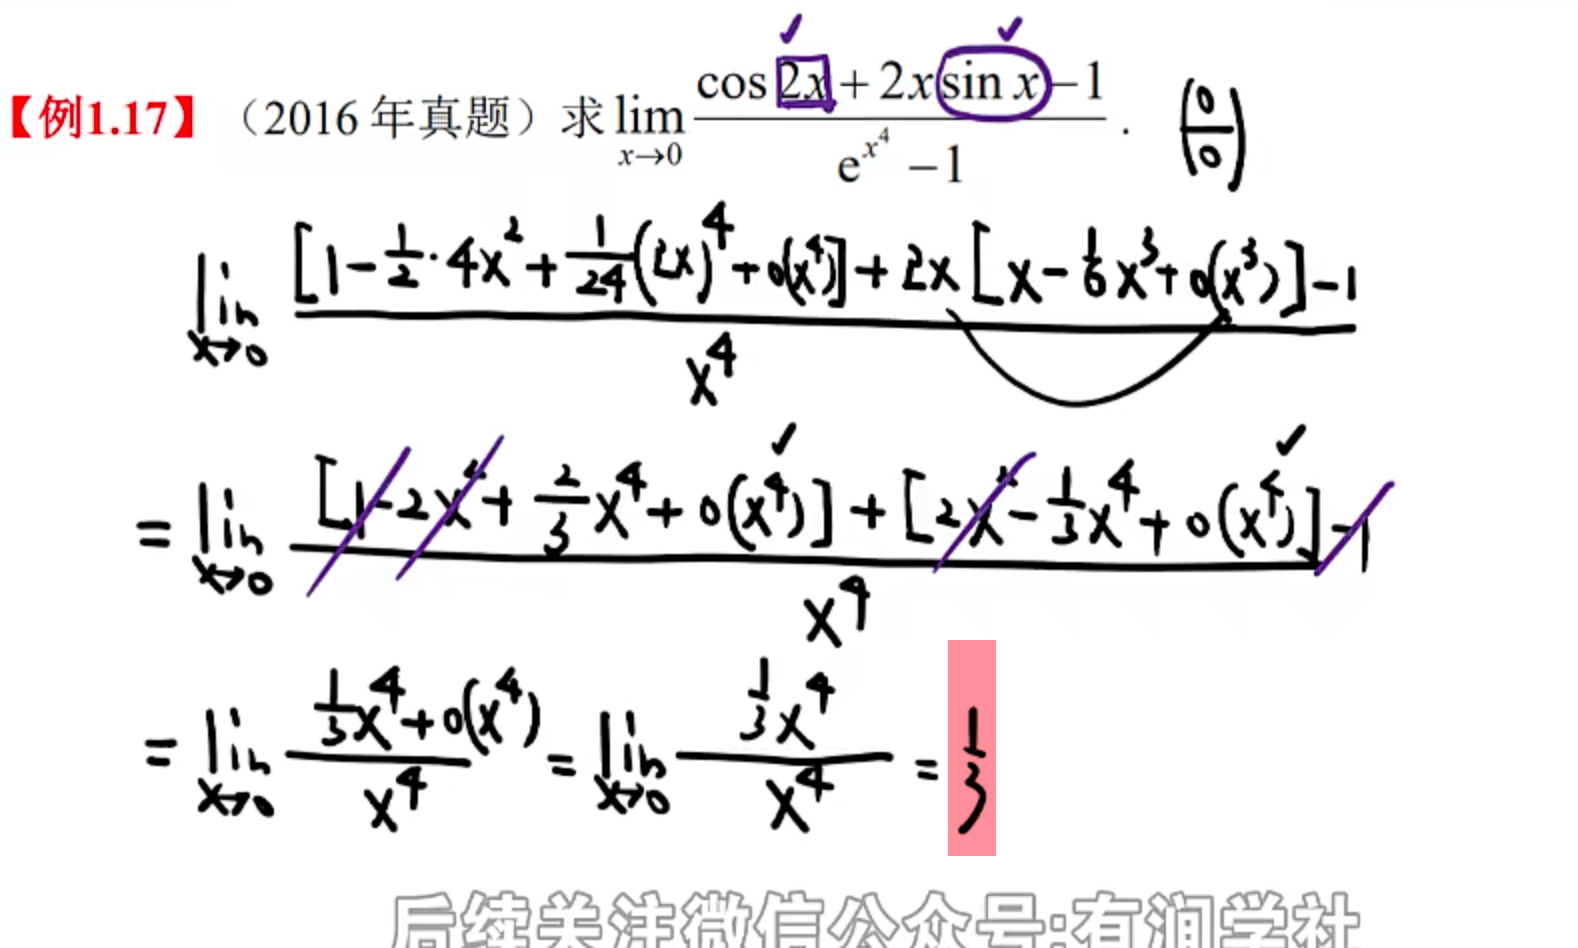 【例1.17】（2016 年真题）求 lim_{x→0} (cos 2x + 2x sin x − 1)/(e^{x^4} − 1) . (0/0)
lim_{x→0} ([1 − 1/2·4x^2 + 1/24(2x)^4 + o(x^4)] + 2x[x − 1/6 x^3 + o(x^3)] − 1)/x^4
= lim_{x→0} ([1 − 2x^2 + 2/3 x^4 + o(x^4)] + [2x^2 − 1/3 x^4 + o(x^4)] − 1)/x^4
= lim_{x→0} (1/3 x^4 + o(x^4))/x^4 = lim_{x→0} (1/3 x^4)/x^4 = 1/3
后续关注微信公众号:有润学社